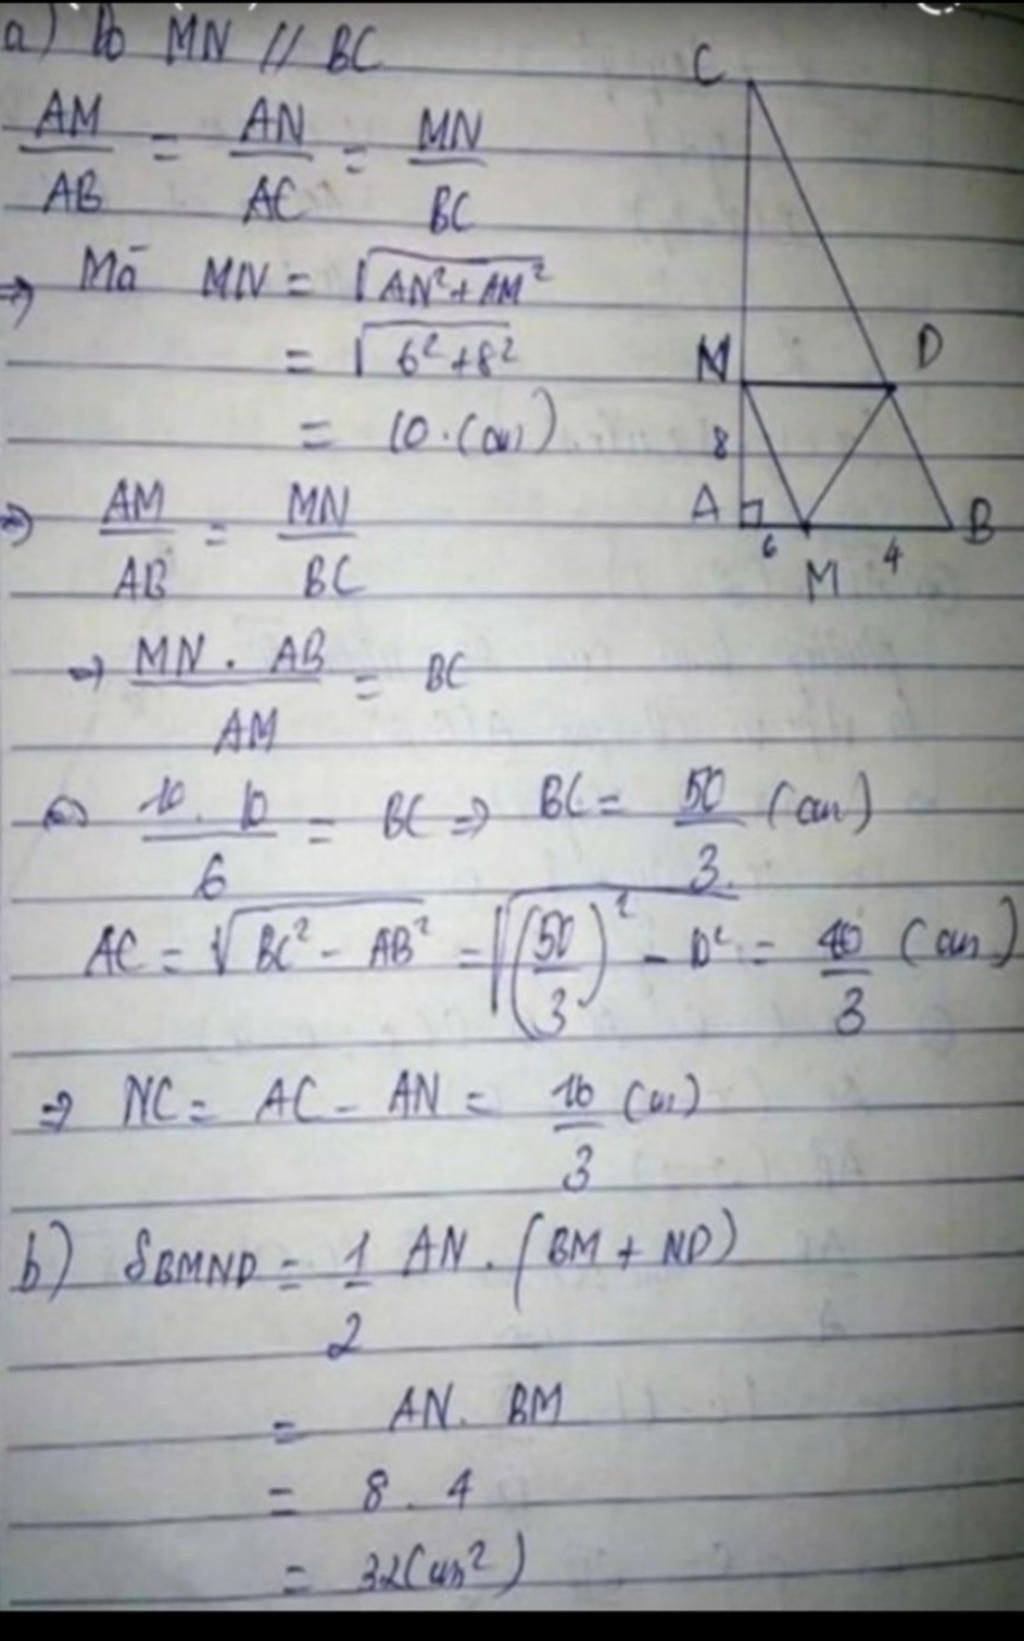 a) Do MN // BC
AM/AB = AN/AC = MN/BC
⇒ Mà MN = √(AN² + AM²)
= √(6² + 8²)
= 10 (cm)
⇒ AM/AB = MN/BC
→ (MN . AB)/AM = BC
⇔ (10 . 10)/6 = BC ⇒ BC = 50/3 (cm)
AC = √(BC² - AB²) = √((50/3)² - 10²) = 40/3 (cm)
⇒ NC = AC - AN = 16/3 (cm)
b) SBMND = 1/2 AN . (BM + ND)
= AN . BM
= 8 . 4
= 32 (cm²)
C
N
D
8
A
B
6
4
M